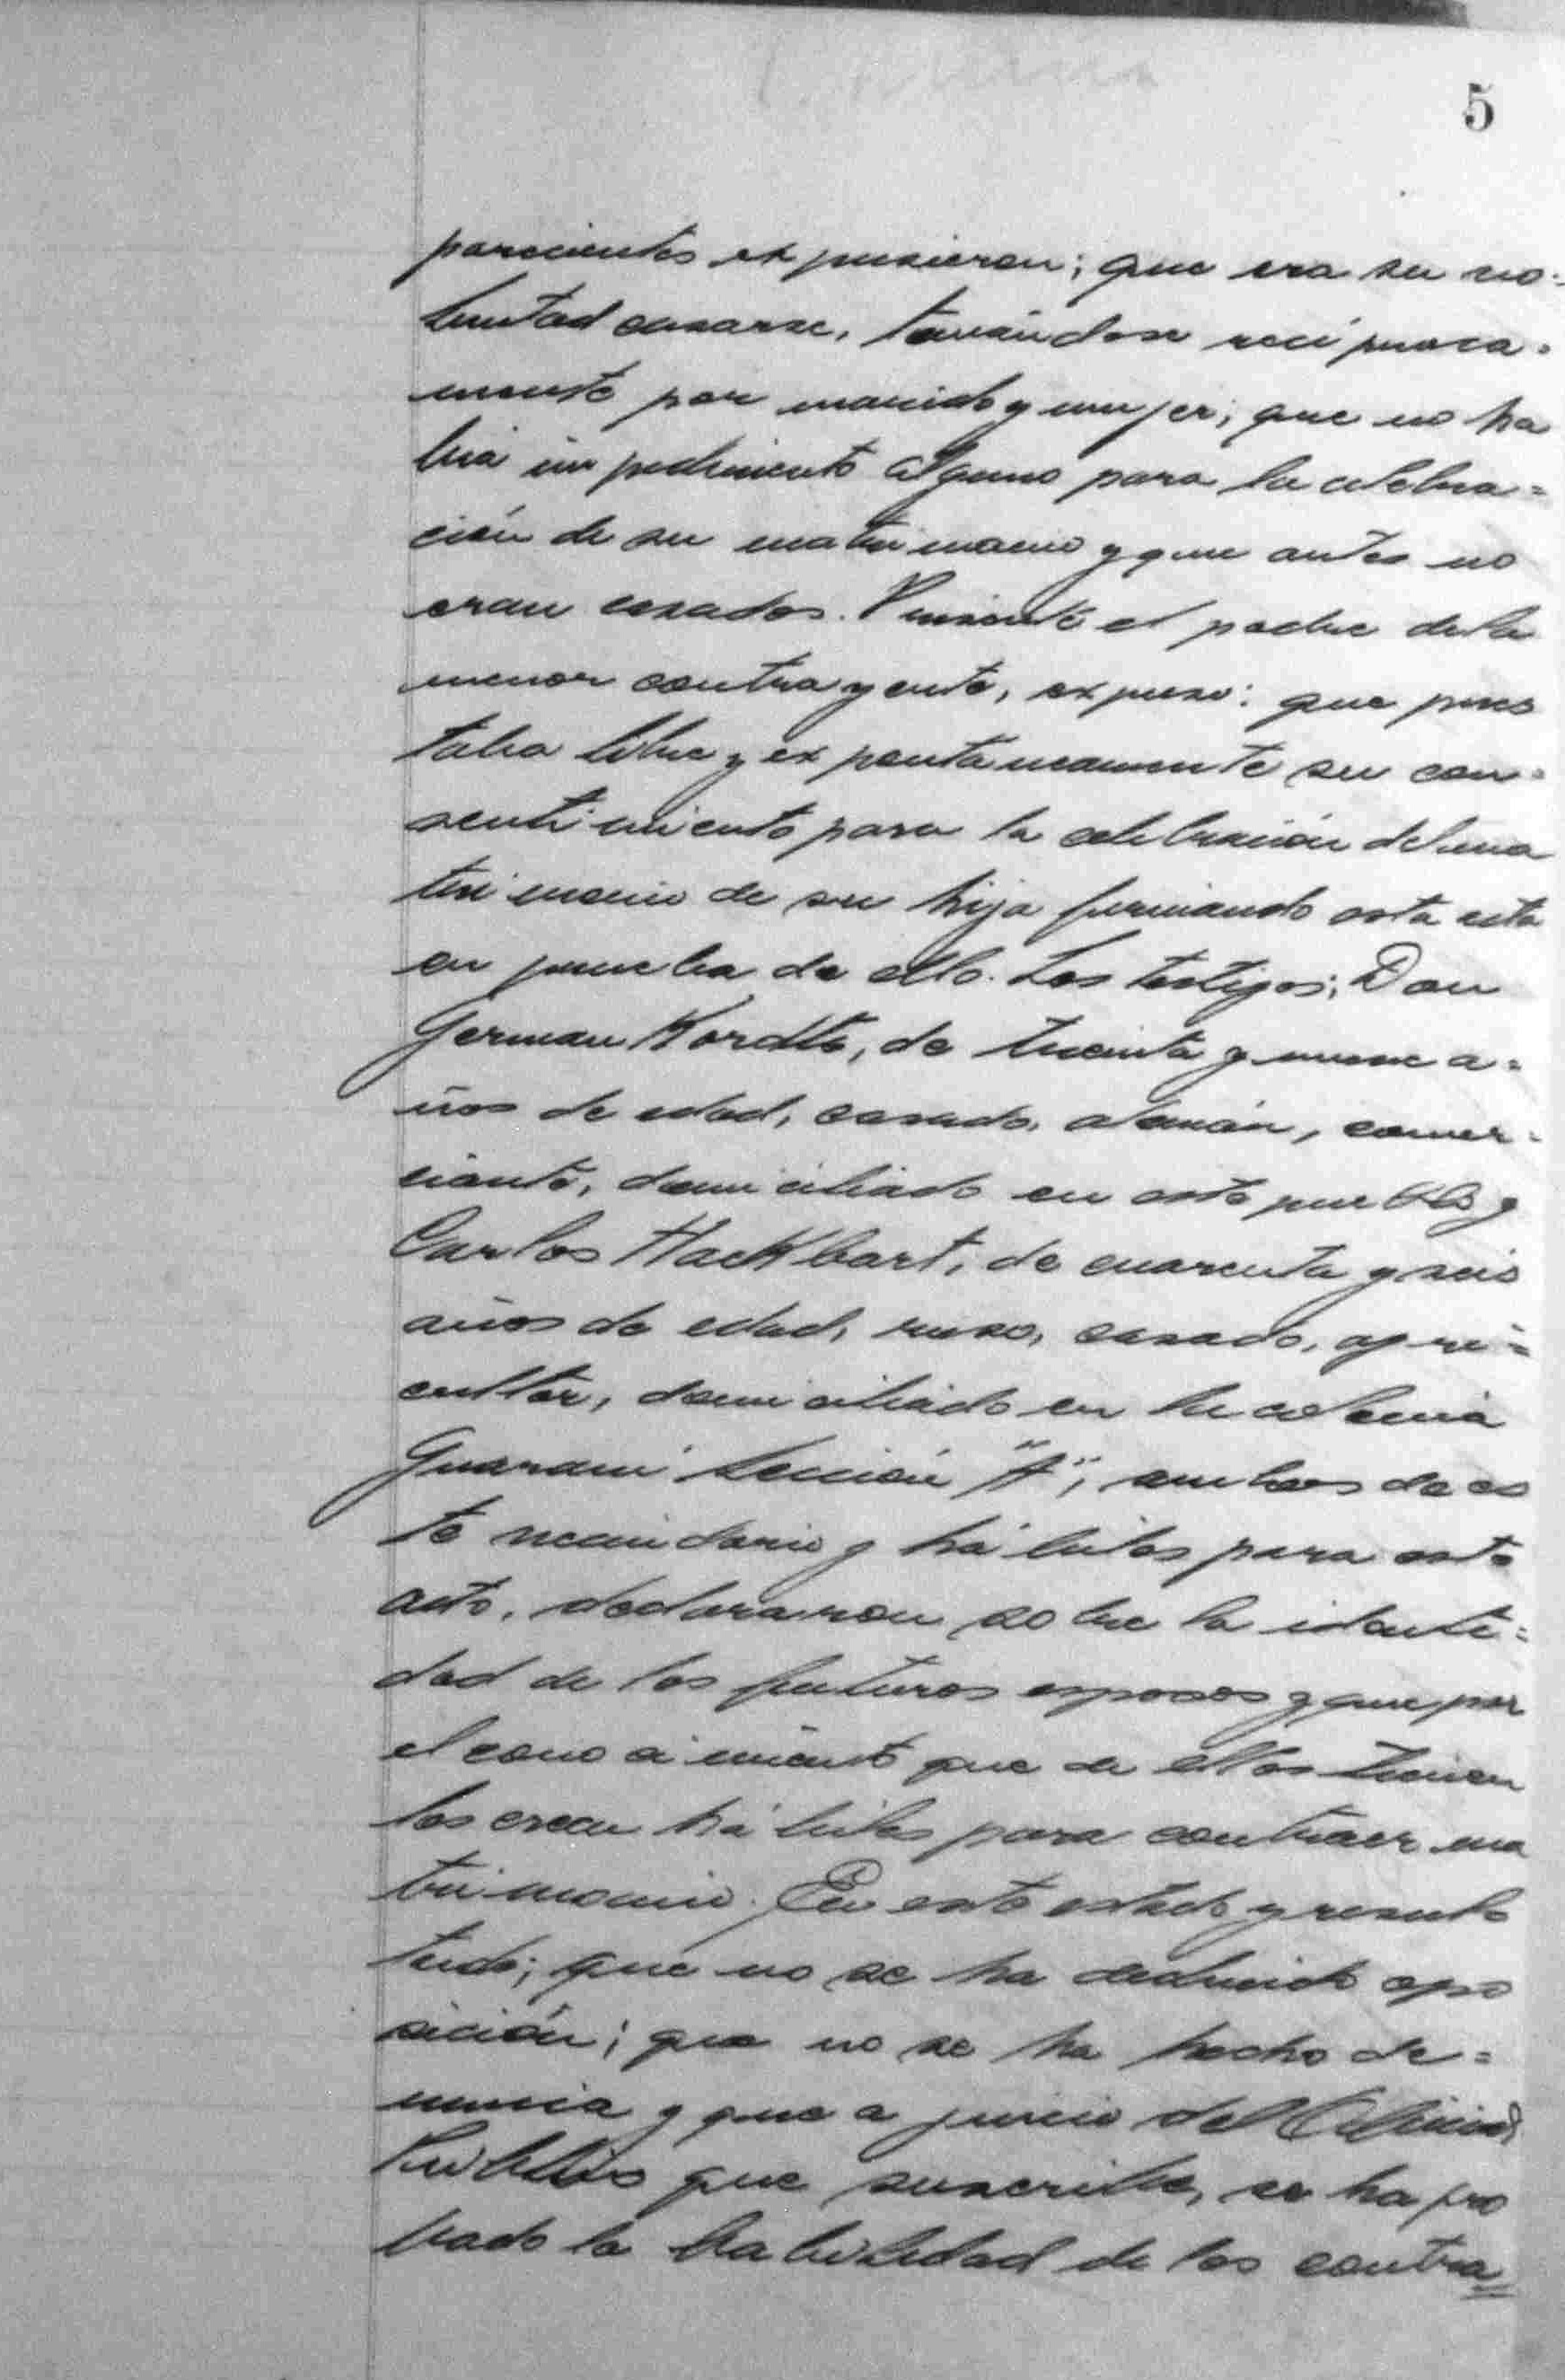 5
parecientes expusieron; que era su vo-
luntad casarse, tomándose recíproca-
mente por marido y mujer; que no ha
bia impedimento alguno para la celebra=
ción de su matrimonio y que antes no
eran casados. Presente el padre de la
menor contrayente, expuso: que pres
taba libre y expontaneamente su con=
sentimiento para la celebración del ma
trimonio de su hija firmando esta acta
en prueba de ello. Los testigos; Don
German Kordts, de treinta y nueve a=
ños de edad, casado, alemán, comer=
ciante, domiciliado en este pueblo y
Carlos Hackbart, de cuarenta y seis
años de edad, ruso, casado, agri=
cultor, domiciliado en la colonia
Guaraní Sección "A", ambos de es
te vecindario y hábiles para este
acto, declararon sobre la identi=
dad de los futuros esposos y que por
el conocimiento que de ellos tienen
los creen hábiles para contraer ma
trimonio. En este estado y resul
tando; que no se ha deducido opo
sición; que no se ha hecho de=
nuncia y que a juicio del Oficial
Público que suscribe, se ha pro
bado la habilidad de los contra=